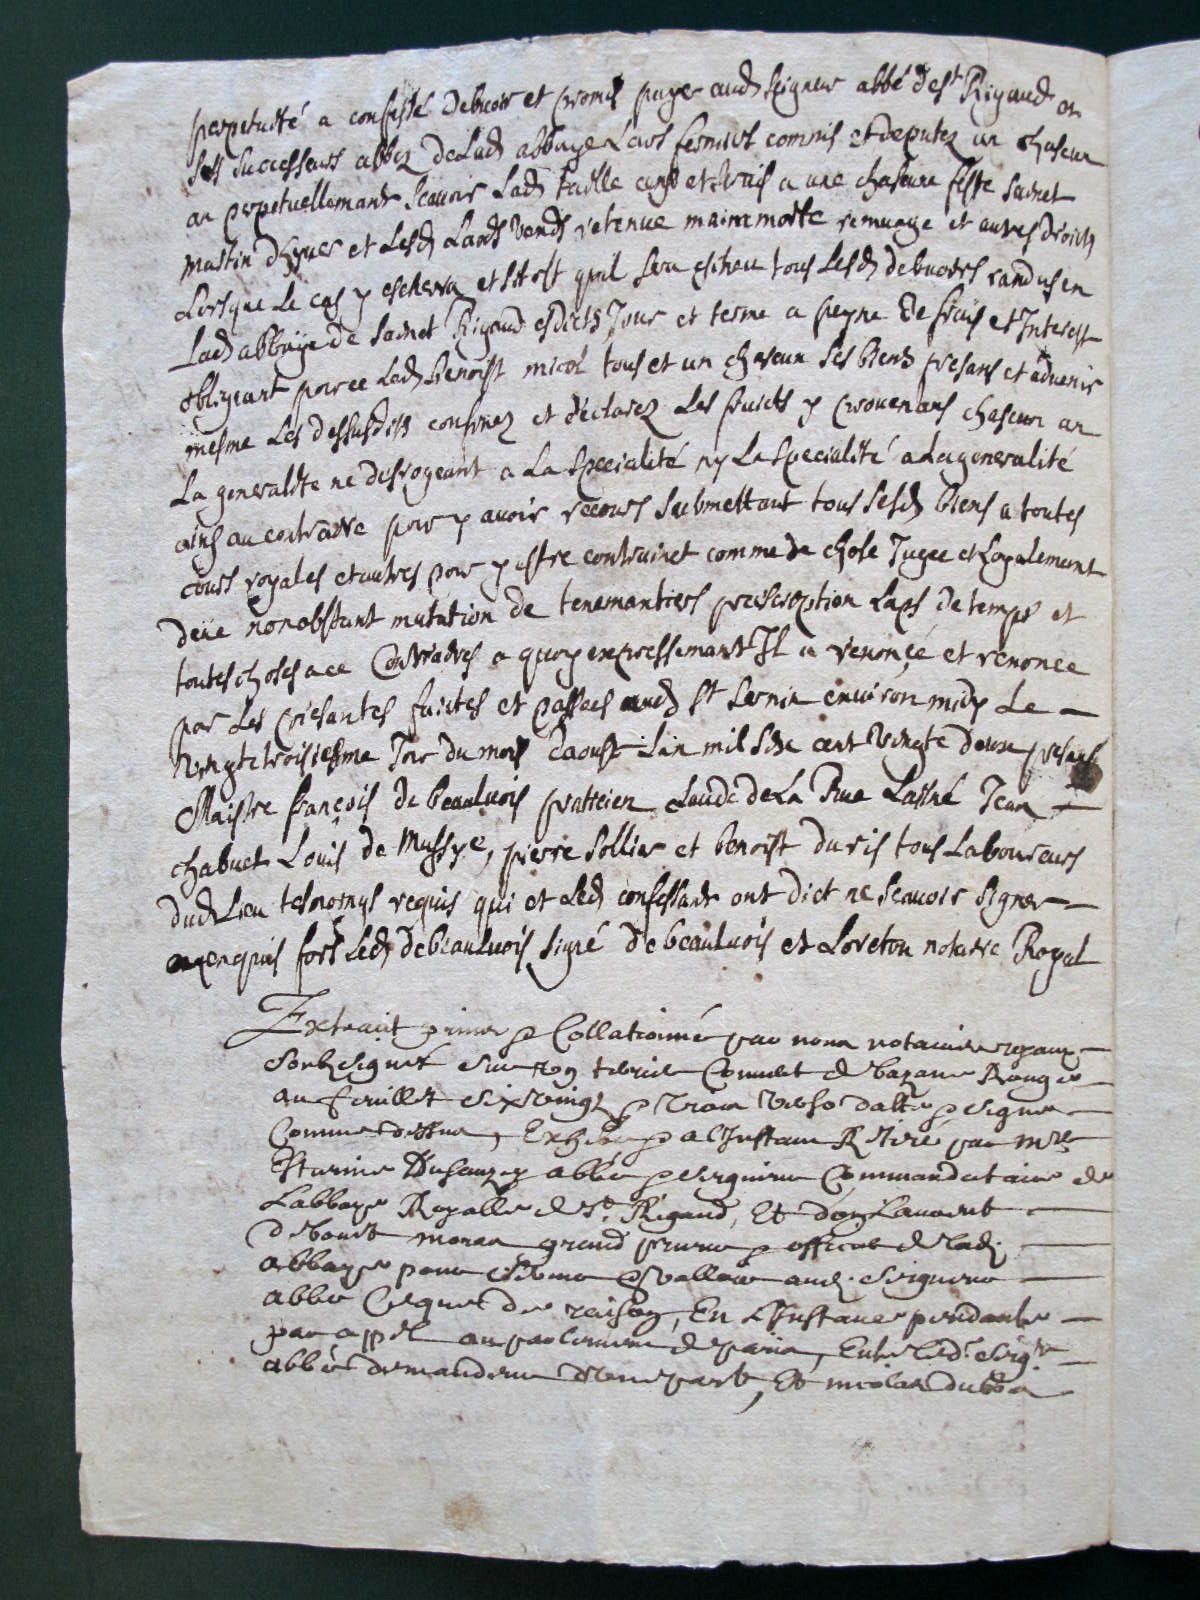 perpetuité a confessé debuoir et promis payer aud seigneur abbé de st Rigaud ou
Ses successeurs abbez de Lad abbaye Leurs fermiers commis et deputez un chascun
an perpetuellemant Scauoir Lad taille cens et seruis a une chascune feste sainct
Martin dhyuer et Lesd Laods Vends retenue mainmorte remuage et autres droicts
Lorsque Le cas y escherra et sitost quil sera escheu tous Lesd debuoirs randus en
Lad abbaye de sainct Rigaud esdicts Jour et terme a peyne de frais et Interest
obligeant pour ce Led Benoist micol tous et un chascun ses biens presans et aduenir
mesme Les dessusdits confinez et declarez Les fruicts y prouenans chascun an
La generalite ne desrogeant a La specialité ny La specialité a La generalité
ains au contraire pour y auoir recours submettant tous sesd biens a toutes
cours royales et autres pour y estre contrainct comme de chose Jugee et Loyalement
deüe nonobstant mutation de tenemantiers prescription Laps de temps et
toutes choses a ce Contraires a quoy expressemant Il a renoncé et renonce
par Les presantes faictes et passees aud st Sernin enuiron midy Le
Vingt troisiesme Jour du mois daoust Lan mil six cent Vingt deux presans
Maistre françois de beauluois praticien Claude de La Rue Laisné Jean
chabuet Louis de Mussye, pierre sollier et benoist duris tous Laboureurs
dud Lieu tesmoings requis qui et Led confessant ont dict ne scauoir signer
enquis fors Led debeauluois signé debeauluois et Loreton notaire Royal
Extraict prins & Collationné par nous notaires royaux
soubsignés sur son terrier Couuert de bazane Rouge
au feuillet six vingt & trois verso dalte & signe
Comme dessus, Exhibé & a lInstant Retiré par mre
abbé & seigneur Commandataire de
Labbaye Royalle de st. Rigaud, Et
grand prieur & officier de Lad.
abbaye pour seruir & valloir aud. seigneur
abbé Ce que de raison, En LInstance pendante
par appel au parlement de paris, Entre led. seigr
abbé demandeur d'une part, Et nicolas